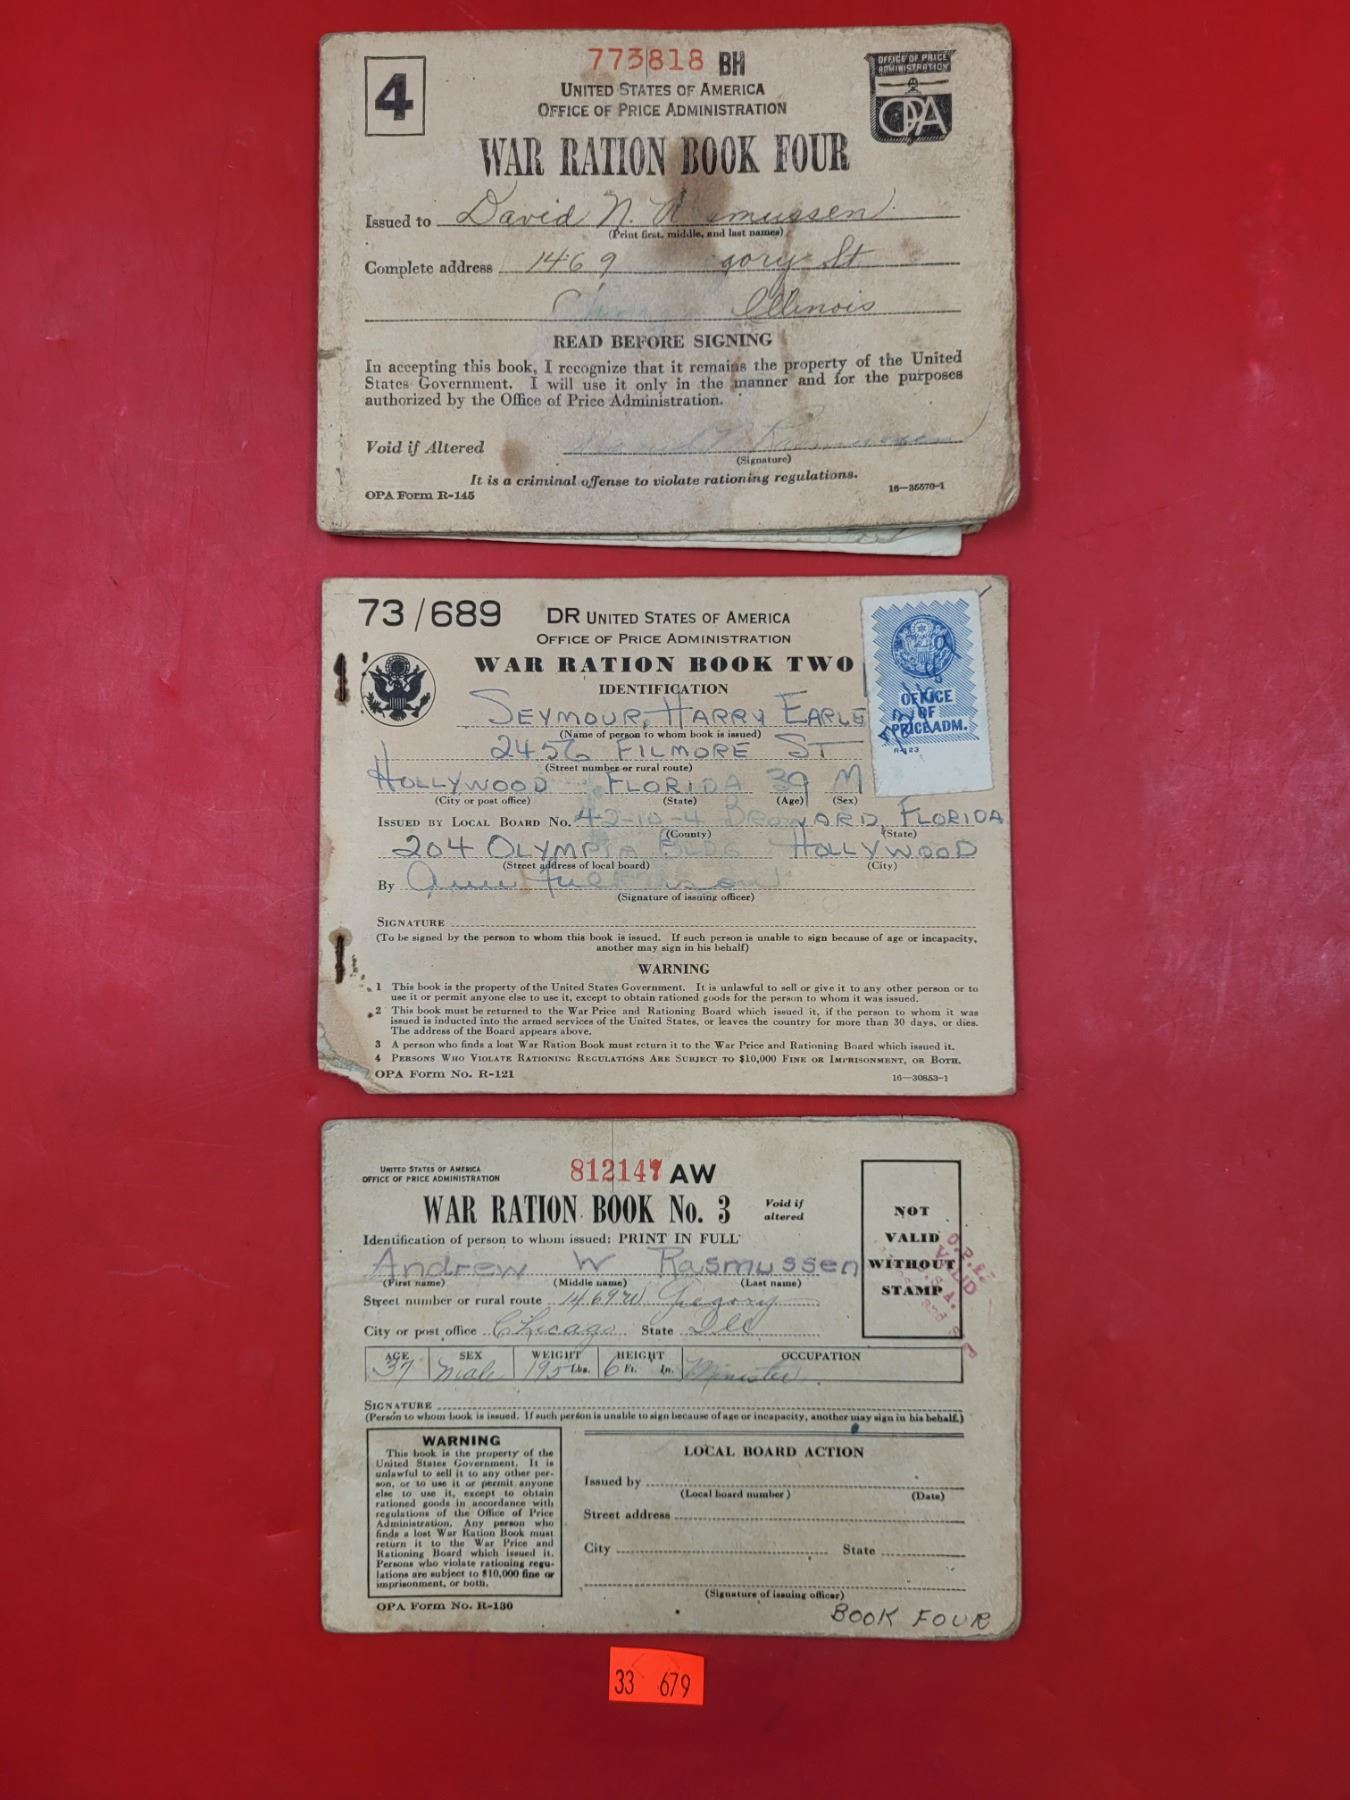 4
773818 BH
UNITED STATES OF AMERICA
OFFICE OF PRICE ADMINISTRATION
OFFICE OF PRICE
ADMINISTRATION
OPA
WAR RATION BOOK FOUR
Issued to David N. Rasmussen
(Print first, middle, and last names)
Complete address 1469 gory St
Illinois
READ BEFORE SIGNING
In accepting this book, I recognize that it remains the property of the United
States Government. I will use it only in the manner and for the purposes
authorized by the Office of Price Administration.
Void if Altered Rasmussen
(Signature)
It is a criminal offense to violate rationing regulations.
OPA Form R-145 16—35570-1
73/689 DR UNITED STATES OF AMERICA
OFFICE OF PRICE ADMINISTRATION
WAR RATION BOOK TWO
IDENTIFICATION
OFFICE
OF
PRICE ADM.
SEYMOUR, HARRY EARLE
(Name of person to whom book is issued)
2456 FILMORE ST
(Street number or rural route)
HOLLYWOOD FLORIDA 39 M
(City or post office) (State) (Age) (Sex)
ISSUED BY LOCAL BOARD No. 42-10-4 BROWARD, FLORIDA
(County) (State)
204 OLYMPIA BLDG HOLLYWOOD
(Street address of local board) (City)
By
(Signature of issuing officer)
SIGNATURE
(To be signed by the person to whom this book is issued. If such person is unable to sign because of age or incapacity,
another may sign in his behalf)
WARNING
1 This book is the property of the United States Government. It is unlawful to sell or give it to any other person or to
use it or permit anyone else to use it, except to obtain rationed goods for the person to whom it was issued.
2 This book must be returned to the War Price and Rationing Board which issued it, if the person to whom it was
issued is inducted into the armed services of the United States, or leaves the country for more than 30 days, or dies.
The address of the Board appears above.
3 A person who finds a lost War Ration Book must return it to the War Price and Rationing Board which issued it.
4 PERSONS WHO VIOLATE RATIONING REGULATIONS ARE SUBJECT TO $10,000 FINE OR IMPRISONMENT, OR BOTH.
OPA Form No. R-121 16—30853-1
UNITED STATES OF AMERICA
OFFICE OF PRICE ADMINISTRATION
812147 AW
WAR RATION BOOK No. 3 Void if
altered
NOT
VALID
WITHOUT
STAMP
Identification of person to whom issued: PRINT IN FULL
Andrew W Rasmussen
(First name) (Middle name) (Last name)
Street number or rural route 1469 W Gregory
City or post office Chicago State Ill
AGE SEX WEIGHT HEIGHT OCCUPATION
37 Male 195 Lbs. 6 Ft. In. Minister
SIGNATURE
(Person to whom book is issued. If such person is unable to sign because of age or incapacity, another may sign in his behalf.)
WARNING
This book is the property of the
United States Government. It is
unlawful to sell it to any other per-
son, or to use it or permit anyone
else to use it, except to obtain
rationed goods in accordance with
regulations of the Office of Price
Administration. Any person who
finds a lost War Ration Book must
return it to the War Price and
Rationing Board which issued it.
Persons who violate rationing regu-
lations are subject to $10,000 fine or
imprisonment, or both.
LOCAL BOARD ACTION
Issued by
(Local board number) (Date)
Street address
City State
(Signature of issuing officer)
OPA Form No. R-130
BOOK FOUR
33 679